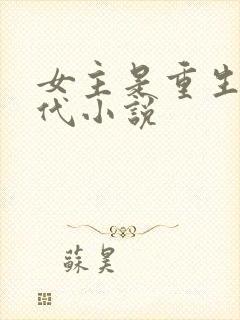 女主是重生
代小說
蘇昊